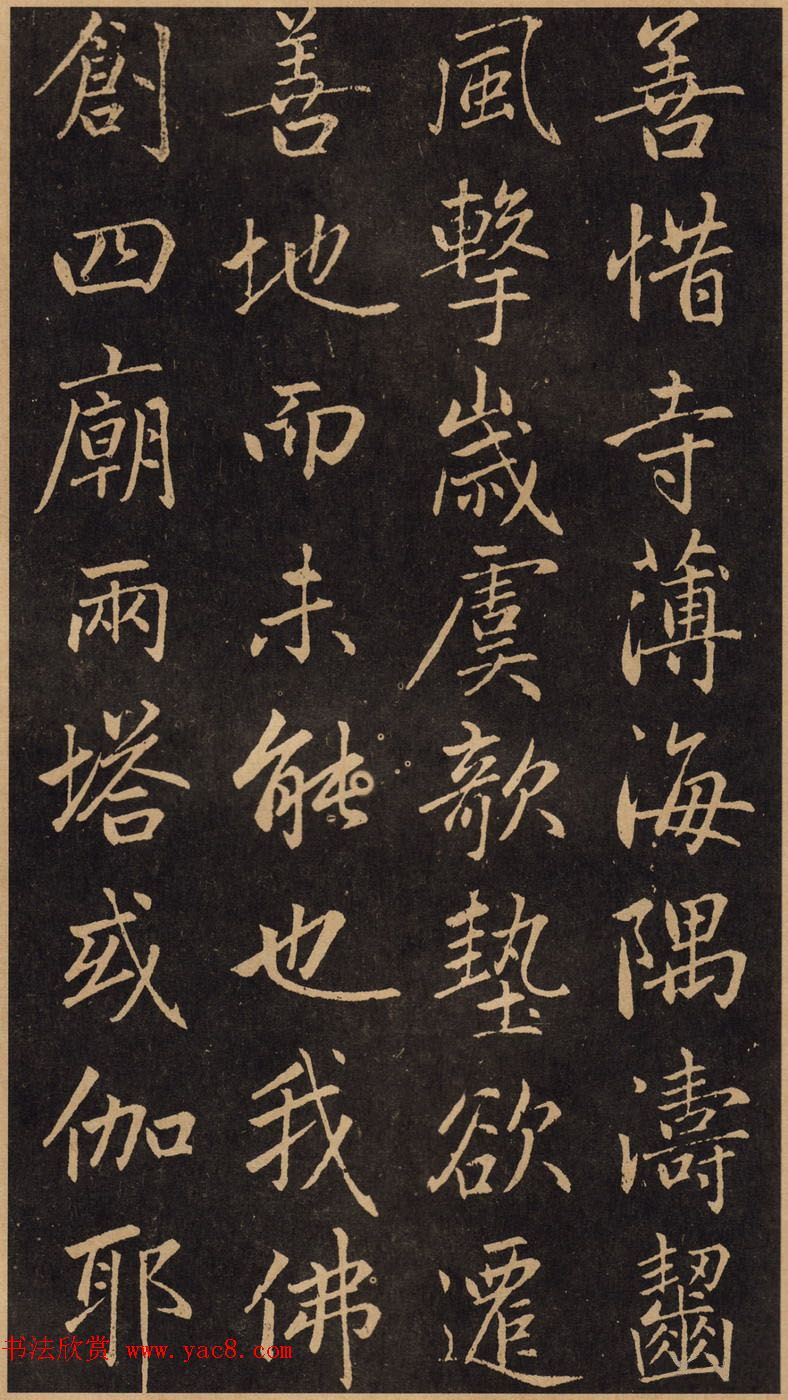 善惜寺薄海隅濤齧
風擊歲虞欹墊欲遷
善地而未能也我佛
創四廟兩塔或伽耶
书法欣赏 www.yac8.com